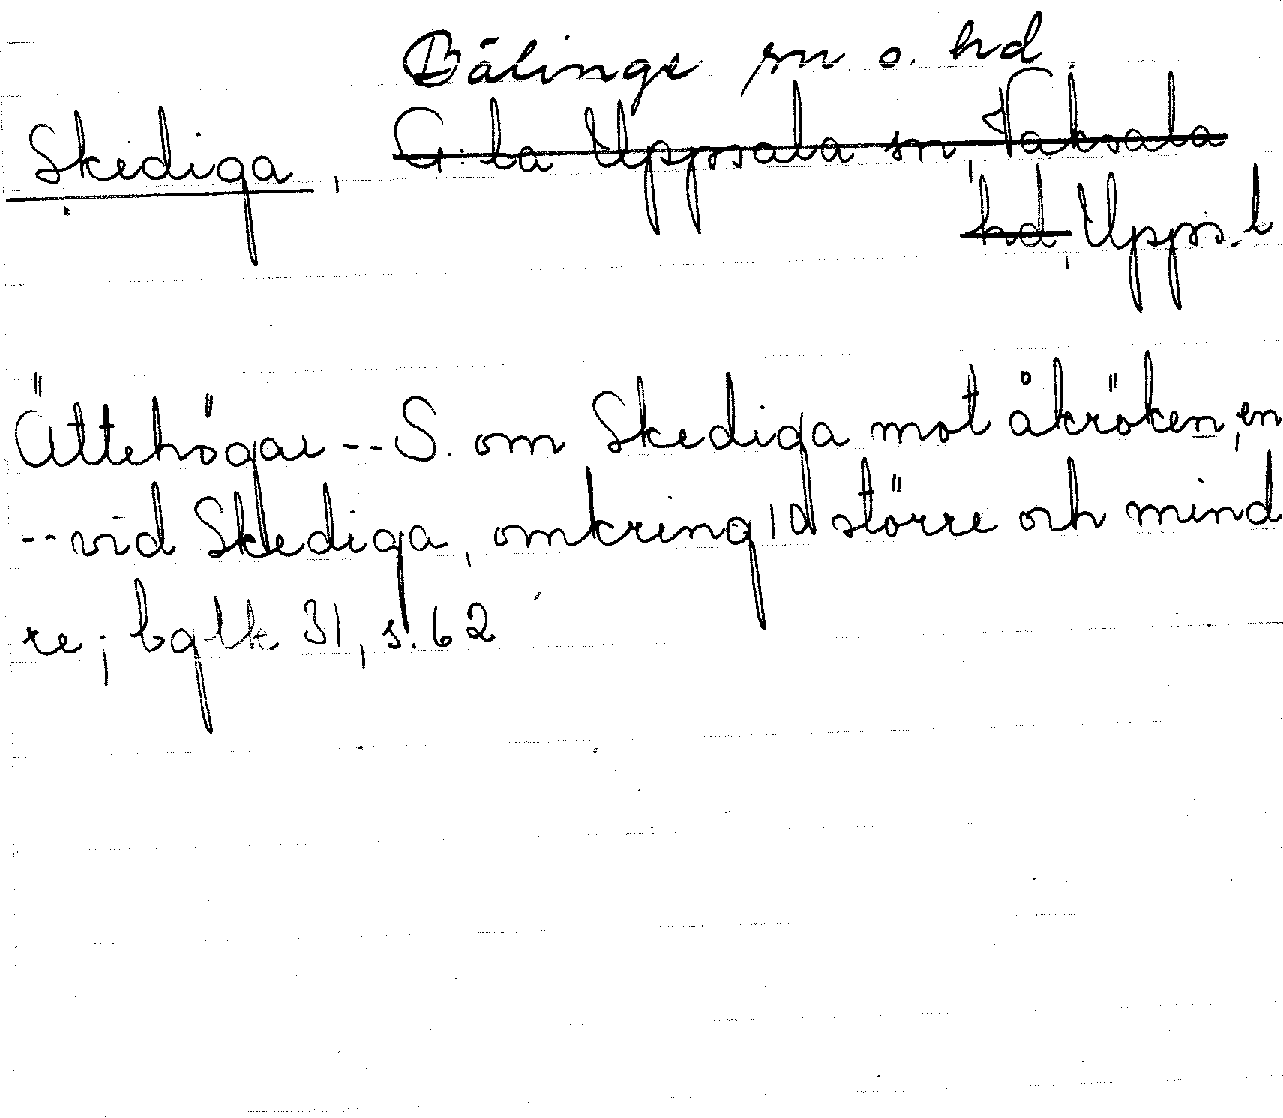 Bälinge sn o. hd
Skediga, G:la Uppsala sn, Vaksala
hd, Upps. l
Ättehögar -- S. om Skediga mot åkröken, en
-- vid Skediga, omkring 10 större och mind
re; bglk 31, s. 62